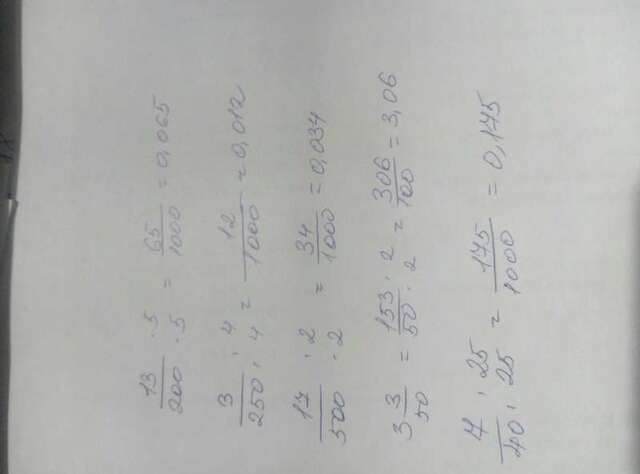 13/200 · 5/5 = 65/1000 = 0,065
3/250 · 4/4 = 12/1000 = 0,012
17/500 · 2/2 = 34/1000 = 0,034
3 3/50 = 153/50 · 2/2 = 306/100 = 3,06
7/40 · 25/25 = 175/1000 = 0,175